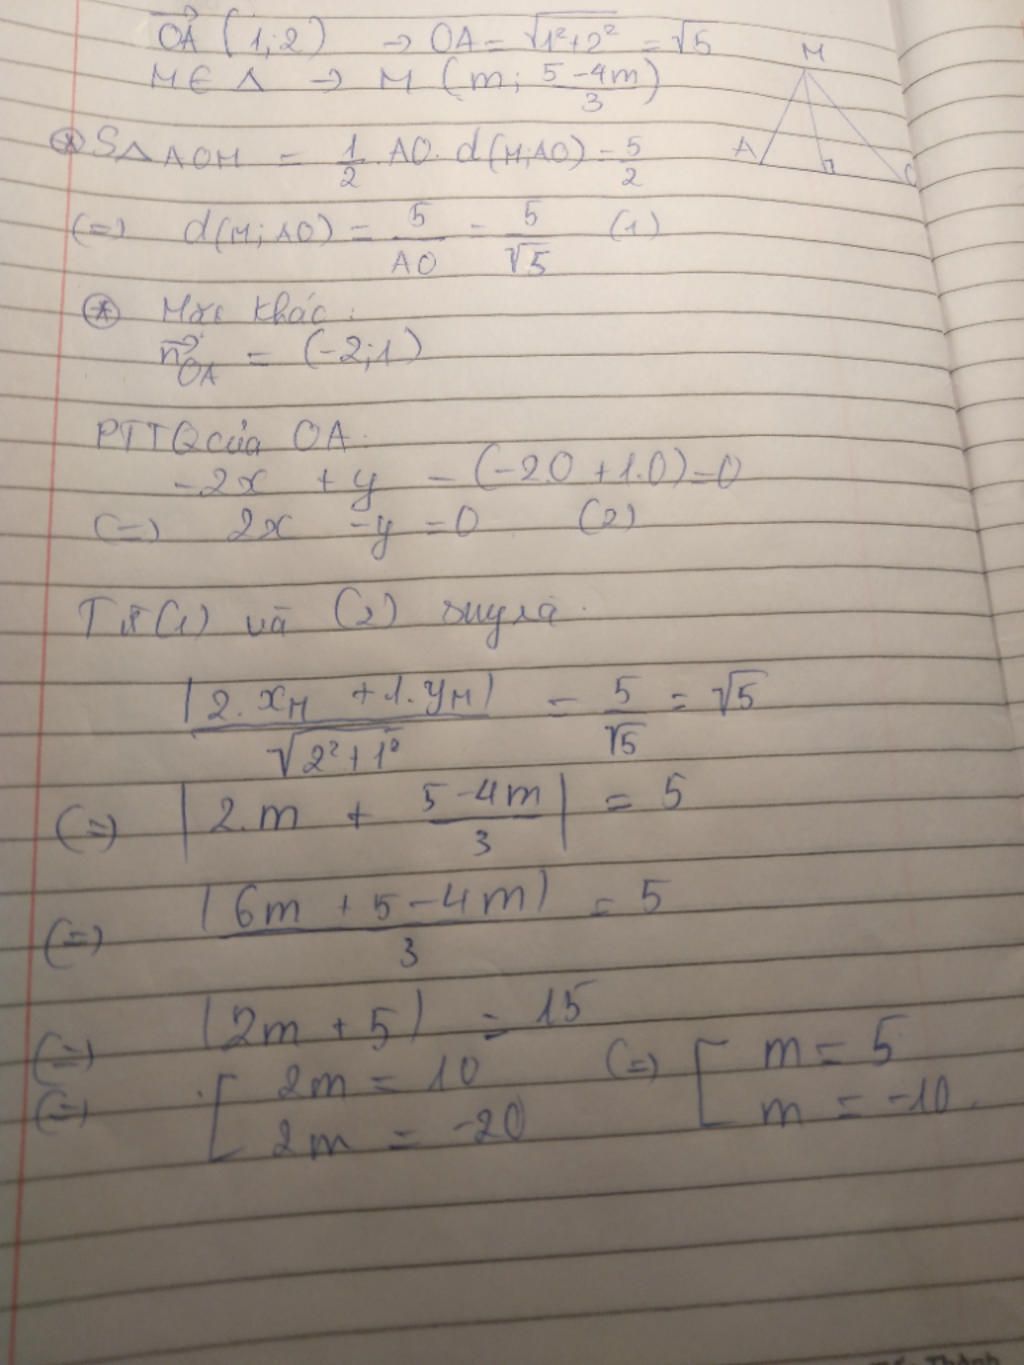 OA (1; 2) → OA = √1²+2² = √5
M
M ∈ Δ → M (m; 5-4m/3)
⊛ SΔAOM = 1/2 . AO. d(M; AO) = 5/2
A
O
(=) d(M; AO) = 5/AO = 5/√5 (1)
⊛ Mặt khác :
n→OA = (-2; 1)
PTTQ của OA:
-2x + y - (-2.0 + 1.0) = 0
(=) 2x - y = 0 (2)
Từ (1) và (2) suy ra:
|2.xM + 1.yM|/√2²+1² = 5/√5 = √5
(=) |2.m + 5-4m/3| = 5
(=) |6m + 5-4m|/3 = 5
(=) |2m + 5| = 15
(=) [ 2m = 10 (=) [ m = 5
2m = -20 m = -10.